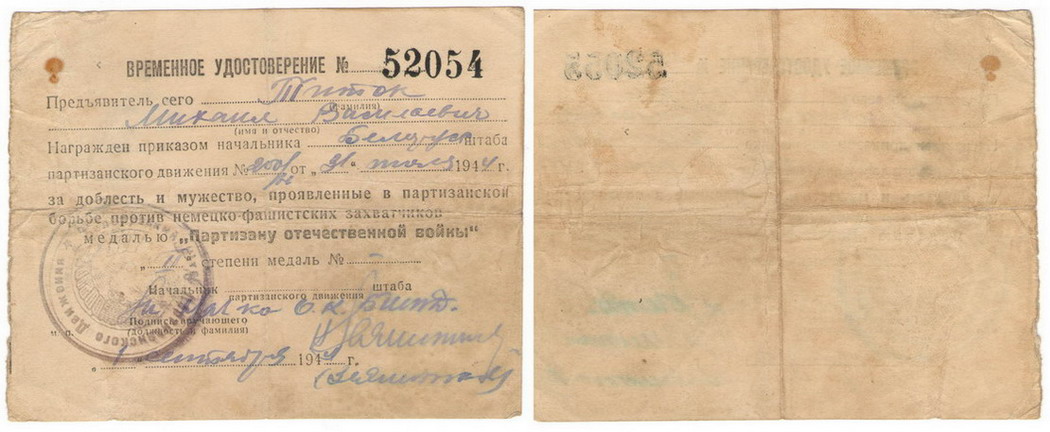 ВРЕМЕННОЕ УДОСТОВЕРЕНИЕ № 52054
Предъявитель сего Титок
(фамилия)
Михаил Васильевич
(имя и отчество)
Награжден приказом начальника Белорус штаба
партизанского движения № от „21" июля 1944 г.
за доблесть и мужество, проявленные в партизанской
борьбе против немецко-фашистских захватчиков
медалью „Партизану отечественной войны"
„II" степени медаль №
Начальник штаба
партизанского движения
Подпись вручающего
(должность и фамилия)
м. п.
„1" сентября 194 г.
52055